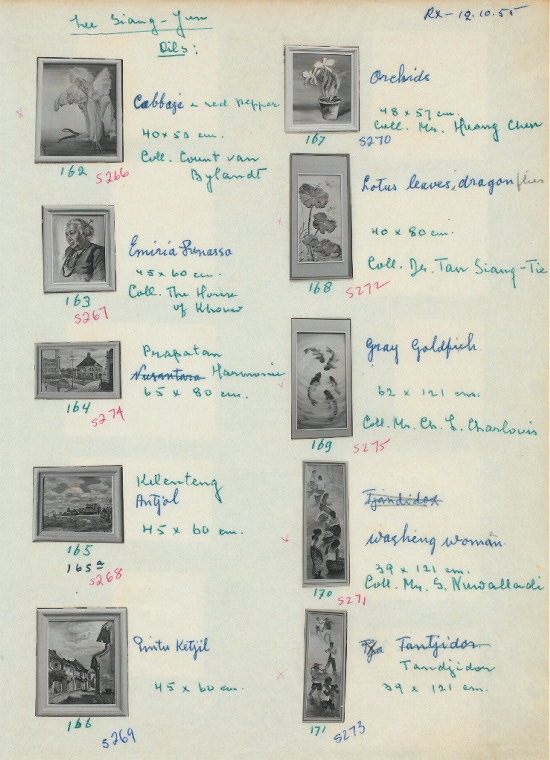 Lee Siang-Yun
Oils:
RX-12.10.55
Cabbage & red pepper
40x50 cm.
Coll. Count van
Bylandt
162
S266
Emiria Sunassa
45 x 60 cm.
Coll. The House
of Khouw
163
S267
Prapatan
Nusantara Harmonie
65 x 80 cm.
164
S274
Kelenteng
Antjol
45 x 60 cm.
165
165a
S268
Pintu Ketjil
45 x 60 cm.
166
S269
Orchids
48 x 57 cm.
Coll. Mr. Huang Chen
167
S270
Lotus leaves, dragonflies
40 x 80 cm.
Coll. Dr. Tan Siang-Tie
168
S272
Gray Goldfish
62 x 121 cm.
Coll. Mr. Ch. L. Charlouis
169
S275
Tjandidor
washing woman
39 x 121 cm.
Coll. Mr. S. Nuwalladi
170
S271
Tja Tantjidor
Tandjidor
39 x 121 cm.
171
S273